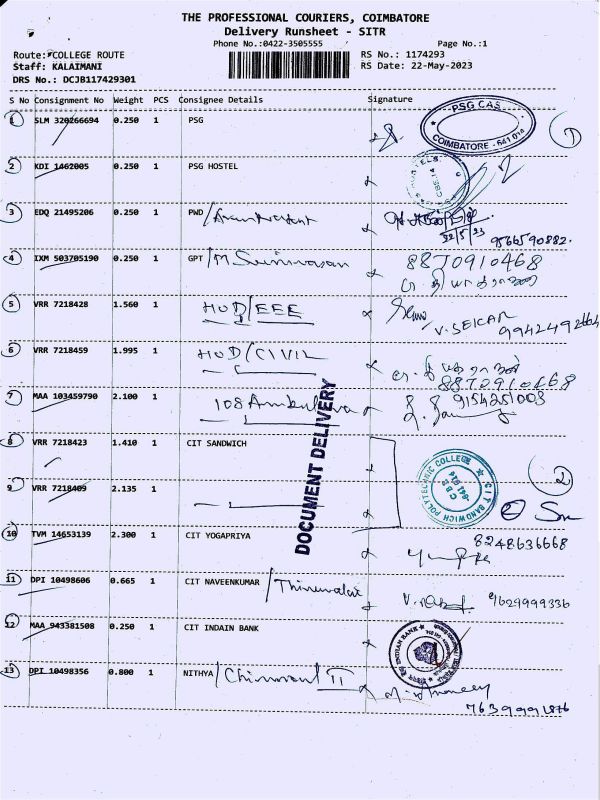 THE PROFESSIONAL COURIERS, COIMBATORE
Delivery Runsheet - SITR
Phone No.:0422-3505555 Page No.:1
Route: COLLEGE ROUTE RS No.: 1174293
Staff: KALAIMANI RS Date: 22-May-2023
DRS No.: DCJB117429301
S No Consignment No Weight PCS Consignee Details Signature
1 SLM 320266694 0.250 1 PSG
PSG CAS
COIMBATORE - 641 014
1
2 KDI 1462005 0.250 1 PSG HOSTEL
3 EDQ 21495206 0.250 1 PWD /
22/5/23
9566590882.
4 IXM 503705190 0.250 1 GPT / M Srinivasan 8870910468
5 VRR 7218428 1.560 1 HOD/EEE
V. SEKAR
9942492664
6 VRR 7218459 1.995 1 HOD/CIVIL
8870910468
7 MAA 103459790 2.100 1 108 Ambulance 9154251003
DOCUMENT DELIVERY
8 VRR 7218423 1.410 1 CIT SANDWICH
C I T SANDWICH POLYTECHNIC COLLEGE
CBE
641 014
2
9 VRR 7218409 2.135 1
2
10 TVM 14653139 2.300 1 CIT YOGAPRIYA 8248636668
11 DPI 10498606 0.665 1 CIT NAVEENKUMAR / Thirumalai 9629999336
12 MAA 943381508 0.250 1 CIT INDAIN BANK
INDIAN BANK
13 DPI 10498356 0.800 1 NITHYA / II
7639991876